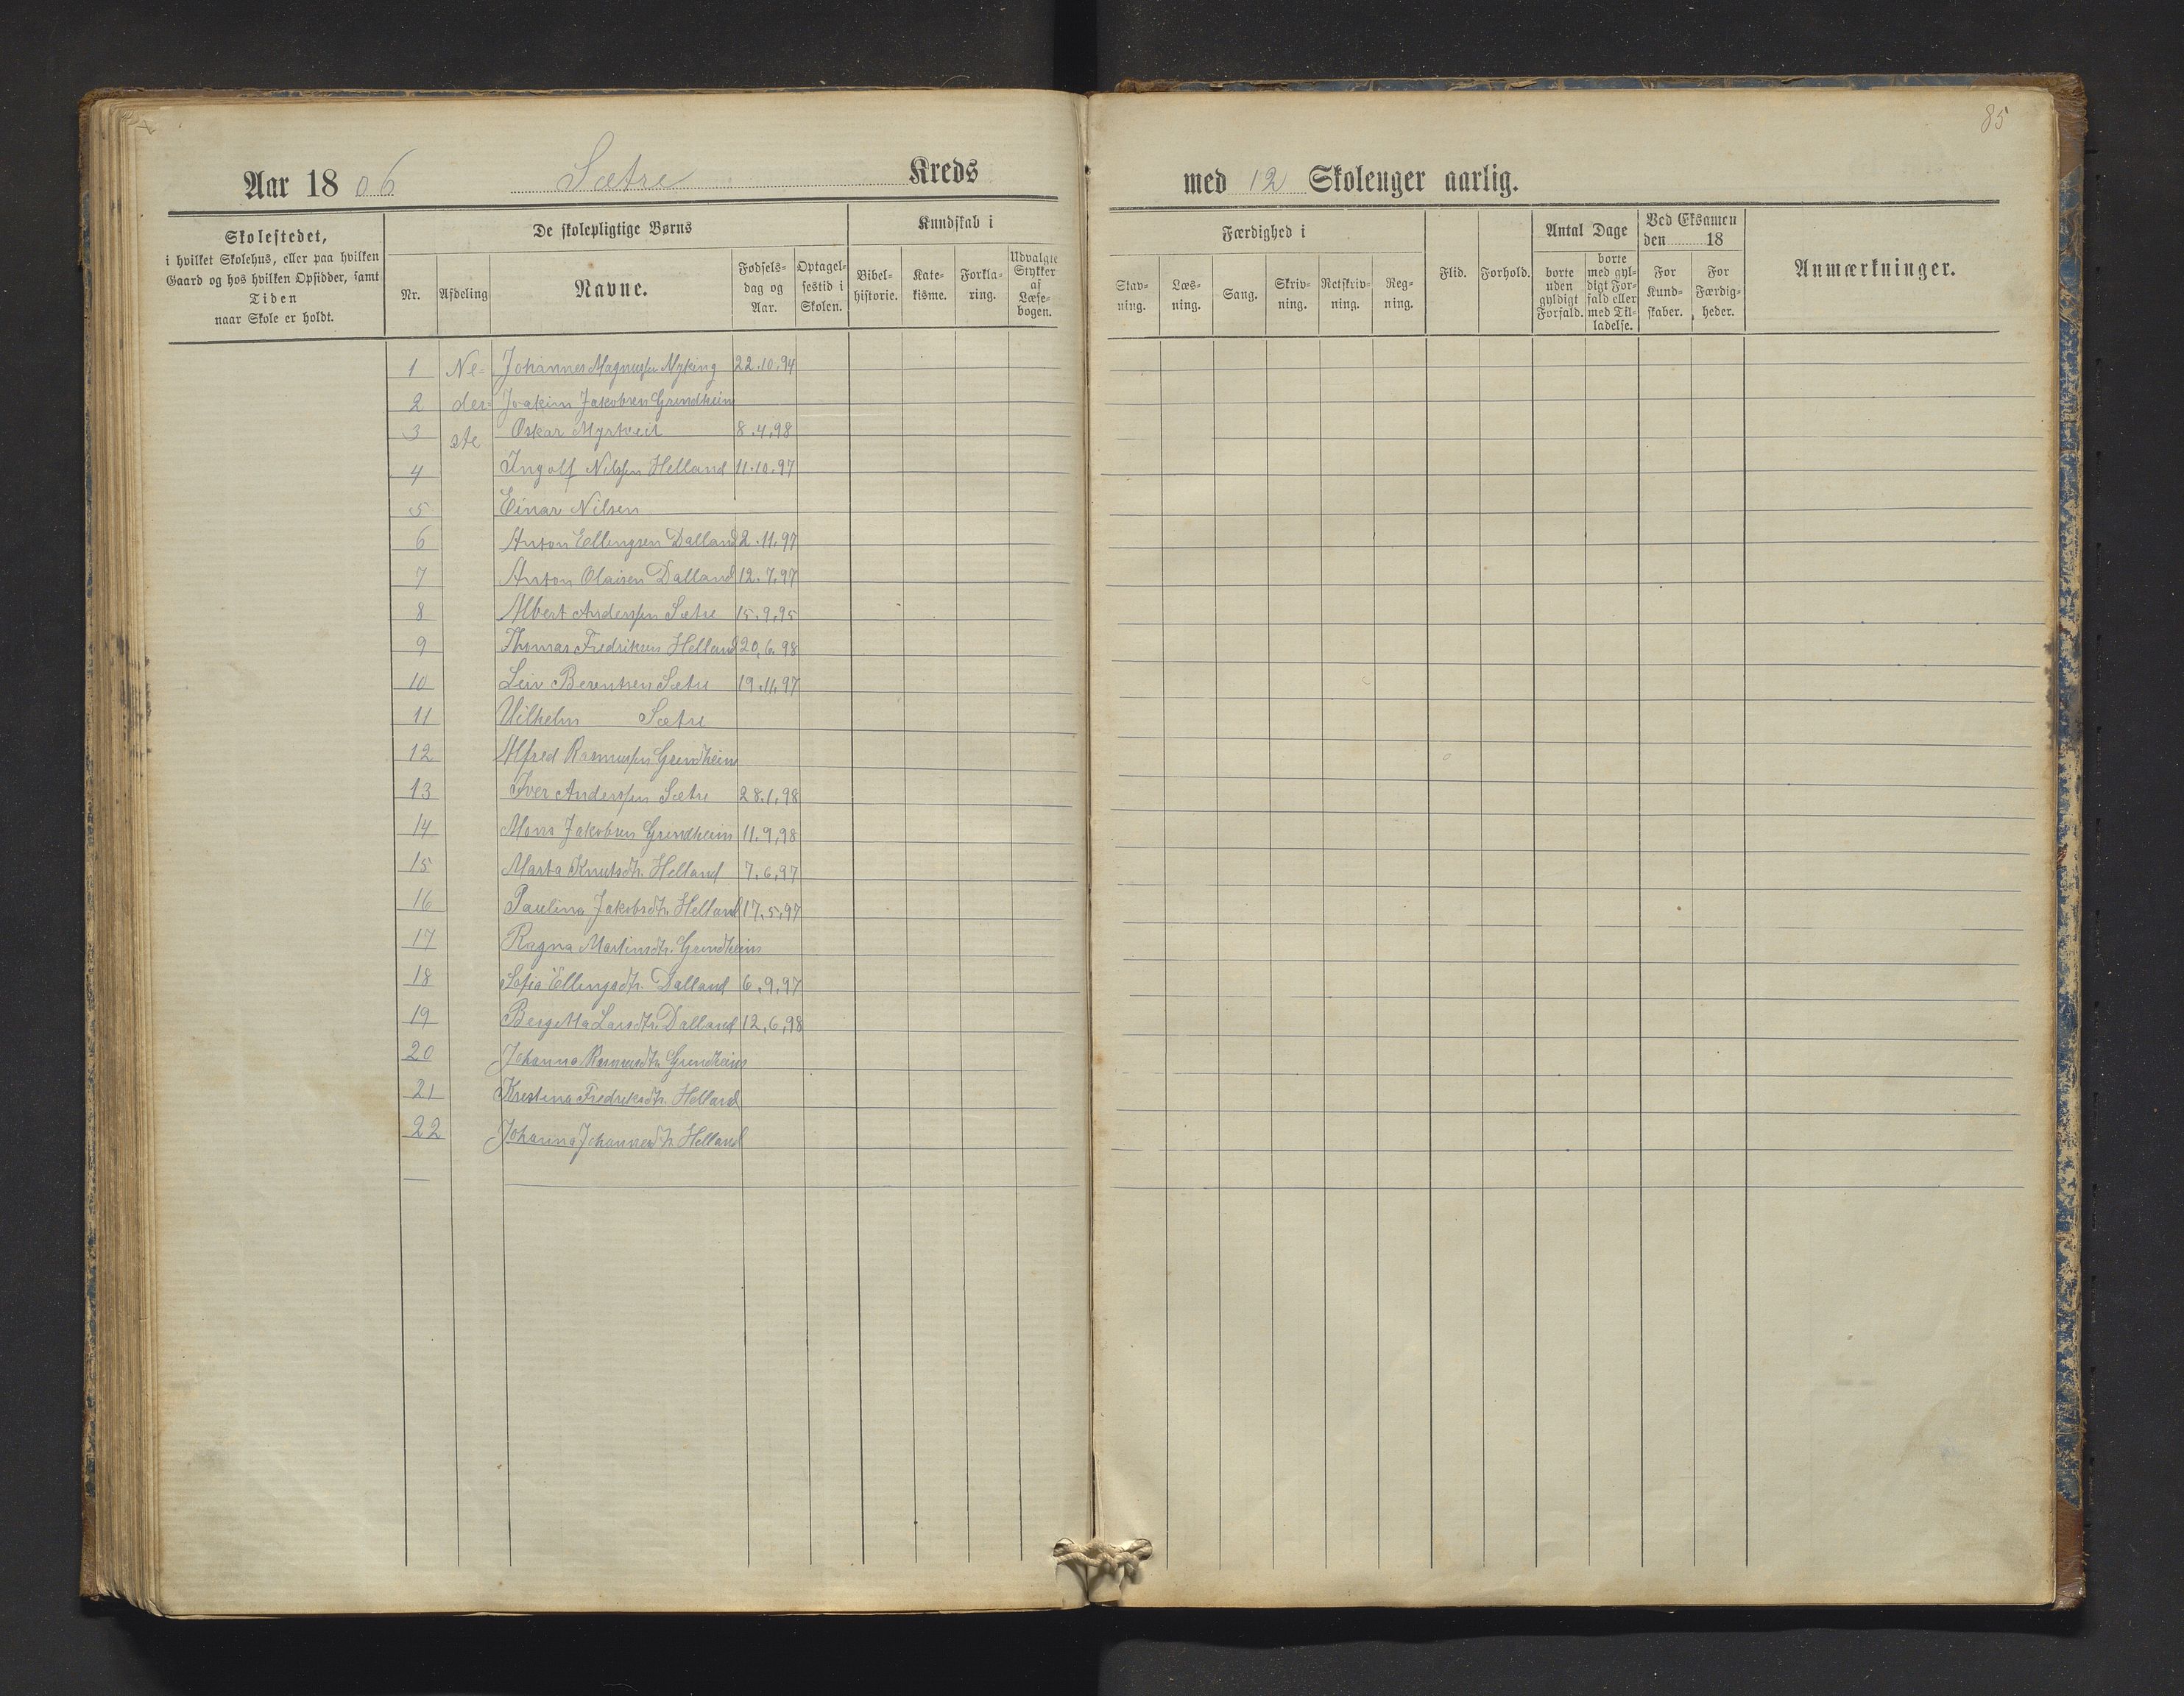 85
Aar 18 06 Sætre Kreds
med 12 Skoleuger aarlig.
Skolestedet,
i hvilket Skolehus, eller paa hvilken
Gaard og hos hvilken Opsidder, samt
Tiden
naar Skole er holdt.
De skolepligtige Børns
Nr.
Afdeling
Navne.
Fødsels-
dag og
Aar.
Optagel-
sestid i
Skolen.
Kundskab i
Bibel-
historie.
Kate-
kisme.
Forkla-
ring.
Udvalgte
Stykker
af
Læse-
bogen.
Færdighed i
Stav-
ning.
Læs-
ning.
Sang.
Skriv-
ning.
Retskriv-
ning.
Reg-
ning.
Flid.
Forhold.
Antal Dage
borte
uden
gyldigt
Forfald.
borte
med gyl-
digt For-
fald eller
med Til-
ladelse.
Ved Eksamen
den 18
For
Kund-
skaber.
For
Færdig-
heder.
Anmærkninger.
1 Ne- Johannes Magnussen Myking 22.10.94
2 der- Joakim Jakobsen Grendheim
3 ste Oskar Myrtveit 8.4.98
4 Ingolf Nilssen Helland 11.10.97
5 Einar Nilsen
6 Anton Ellingsen Dalland 2.11.97
7 Anton Olaisen Dalland 12.7.97
8 Albert Anderssen Sætre 15.9.95
9 Thomas Fredriksen Helland 20.6.98
10 Leiv Berentsen Sætre 19.11.97
11 Vilhelm Sætre
12 Alfred Rasmussen Grendheim
13 Iver Anderssen Sætre 28.1.98
14 Mons Jakobsen Grendheim 11.9.98
15 Marta Knutsdtr. Helland 7.6.97
16 Paulina Jakobsdtr. Helland 17.5.97
17 Ragna Martinsdtr. Grendheim
18 Sofia Ellingsdtr. Dalland 6.9.97
19 Bergitta Larsdtr. Dalland 12.6.98
20 Johanna Rasmusdtr. Grendheim
21 Kristina Fredriksdtr. Helland
22 Johanna Johannesdtr. Helland